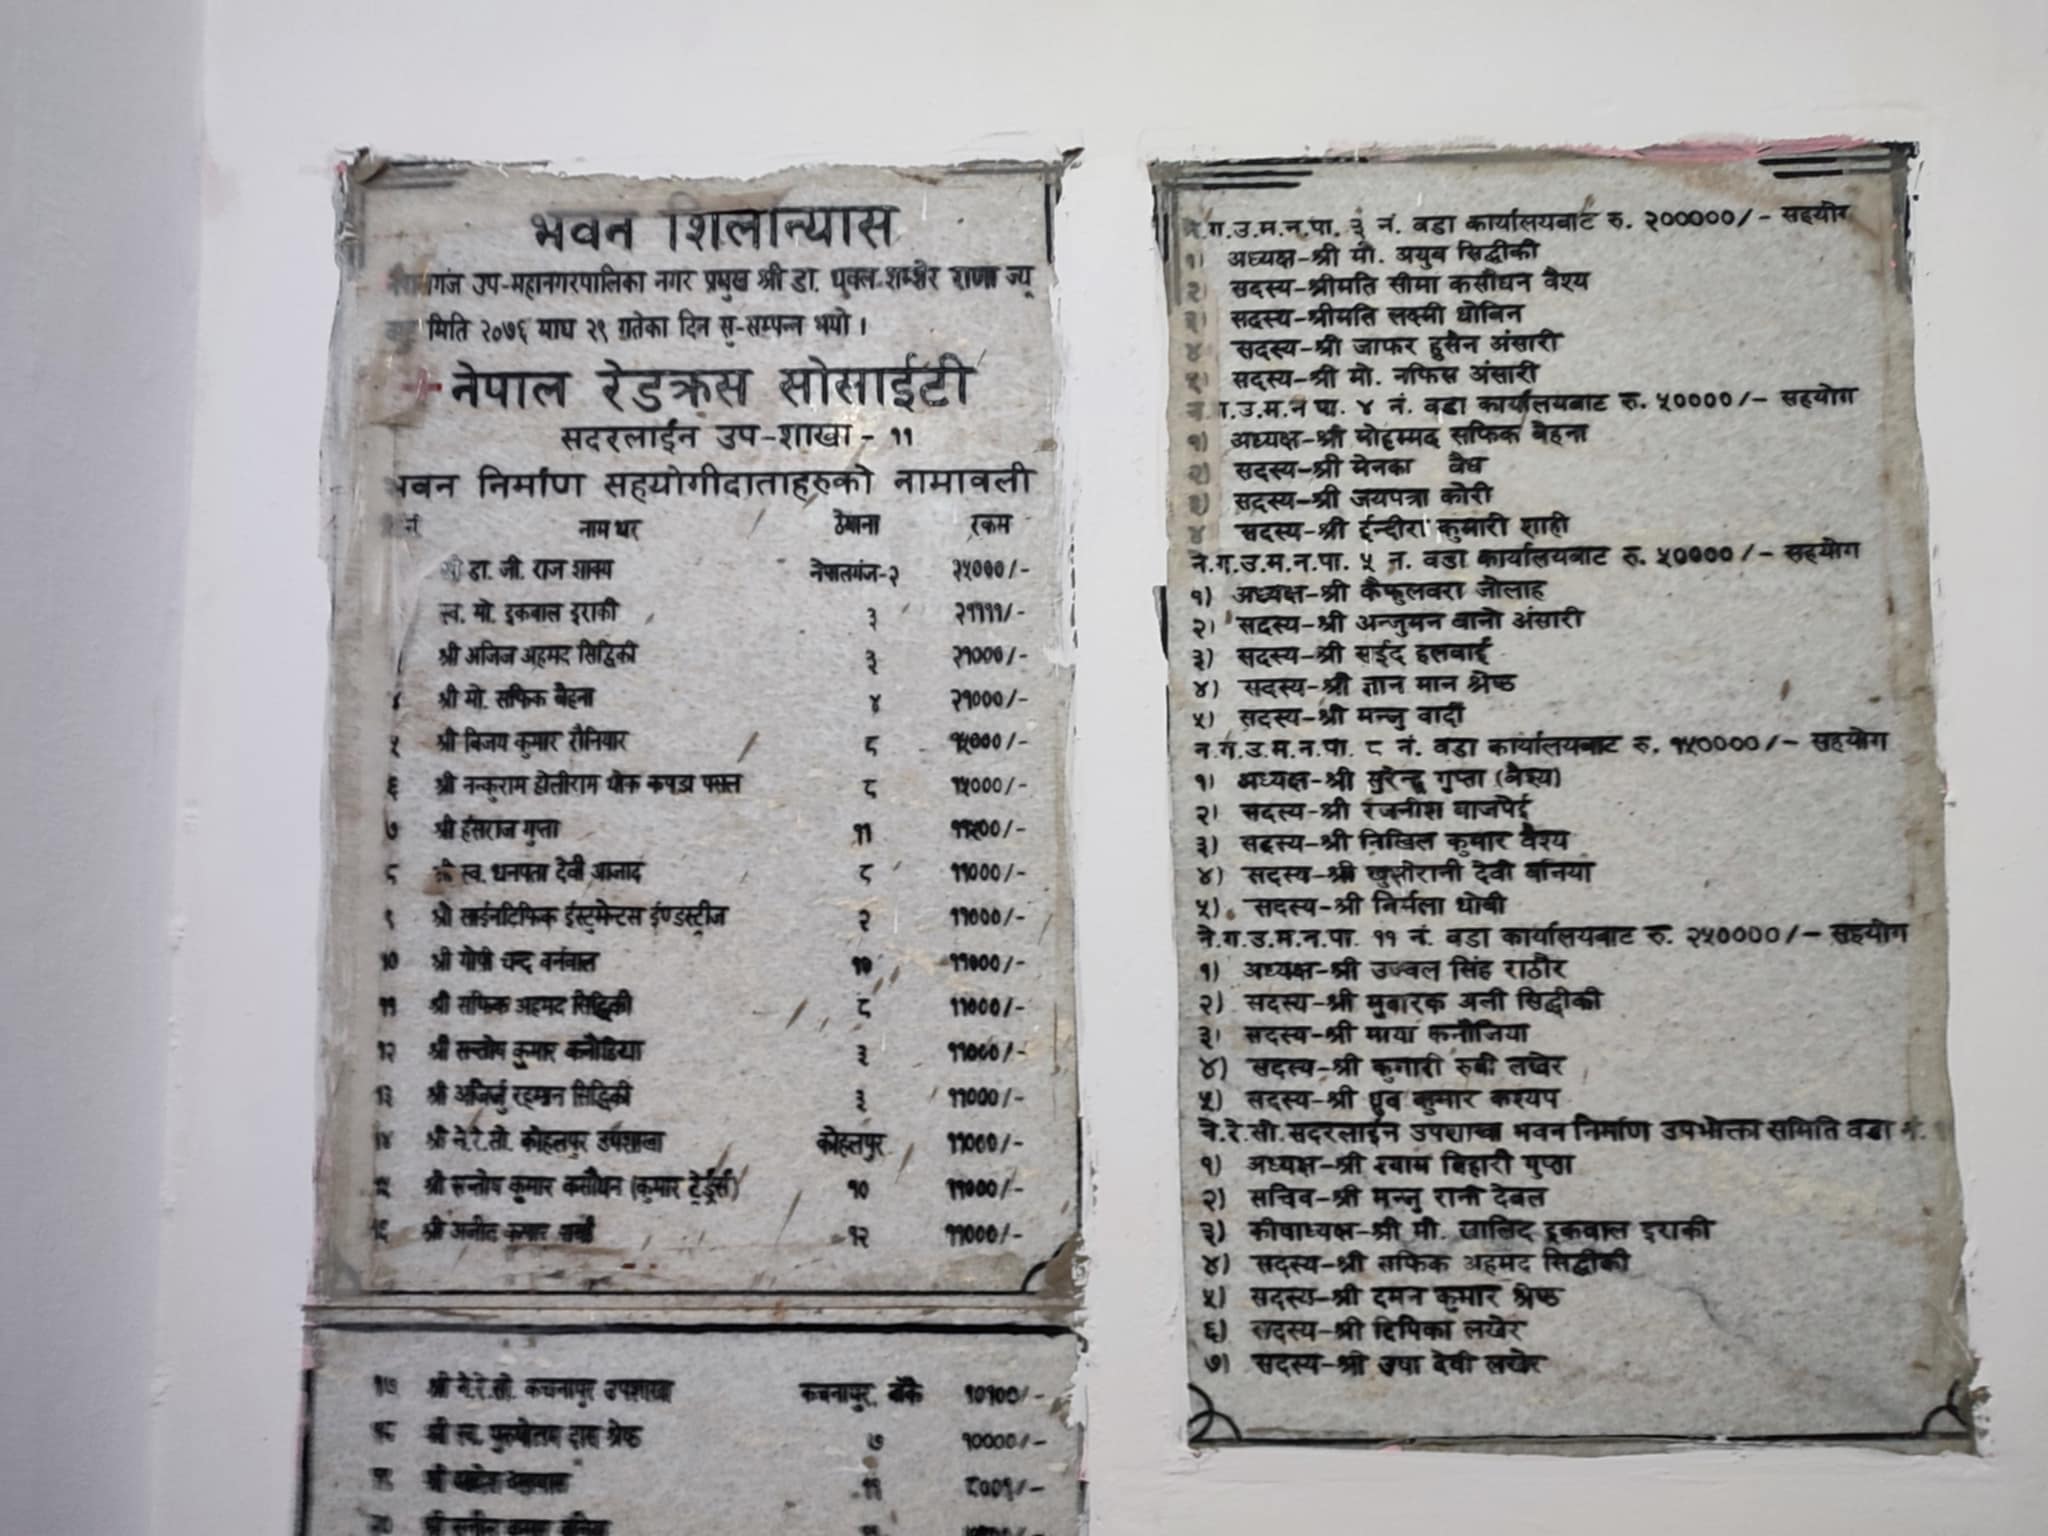 भवन शिलान्यास
गंज उप-महानगरपालिका नगर प्रमुख श्री डा. धुवल शम्शेर राणा ज्यू
मिति २०७६ माघ २९ गतेका दिन सु-सम्पन्न भयो ।
+ नेपाल रेडक्रस सोसाईटी
सदरलाईन उप-शाखा - ११
भवन निर्माण सहयोगीदाताहरुको नामावली
नं नाम थर ठेगाना रकम
श्री डा. जी. राज शाक्य नेपालगंज-२ २५०००/-
स्व. मो. इकबाल इराकी ३ २११११/-
श्री अजिज अहमद सिद्दिकी ३ २१०००/-
४ श्री मो. सफिक बेहना ४ २१०००/-
५ श्री विजय कुमार रौनियार ८ १५०००/-
६ श्री नन्कुराम होलीराम थोक कपडा पसल ८ १५०००/-
७ श्री हंसराज गुप्ता ११ ११५००/-
८ श्री स्व. धनपता देवी आजाद ८ ११०००/-
९ श्री साईनटिफिक ईस्टुमेन्टस ईण्डस्ट्रीज २ ११०००/-
१० श्री गोपी चन्द बर्नवाल १० ११०००/-
११ श्री सफिक अहमद सिद्दिकी ८ ११०००/-
१२ श्री सन्तोष कुमार कनौडिया ३ ११०००/-
१३ श्री अजिजु रहमान सिद्दिकी ३ ११०००/-
१४ श्री ने.रे.सो. कोहलपुर उपशाखा कोहलपुर ११०००/-
१५ श्री सन्तोष कुमार कसौधन (कुमार ट्रेडर्स) १० ११०००/-
१६ श्री अजीत कुमार शर्मा १२ ११०००/-
१७ श्री ने.रे.सो. कचनापुर उपशाखा कचनापुर, बाँके १०१००/-
१८ श्री स्व. पुरुषोतम दास श्रेष्ठ ७ १००००/-
१९ श्री ११ ८००१/-
ने.ग.उ.म.न.पा. ३ नं. वडा कार्यालयबाट रु. २०००००/- सहयोग
१) अध्यक्ष-श्री मो. अयुब सिद्धीकी
२) सदस्य-श्रीमति सीमा कसौधन वैश्य
३) सदस्य-श्रीमति लक्ष्मी धोबिन
४ सदस्य-श्री जाफर हुसैन अंसारी
५) सदस्य-श्री मो. नफिस अंसारी
न.ग.उ.म.न पा. ४ नं. वडा कार्यालयबाट रु. ५००००/- सहयोग
१) अध्यक्ष-श्री मोहम्मद सफिक बेहना
२) सदस्य-श्री मेनका वैध
३) सदस्य-श्री जयपत्रा कोरी
४ सदस्य-श्री ईन्दीरा कुमारी शाही
ने.ग.उ.म.न.पा. ५ न. वडा कार्यालयबाट रु. ५००००/- सहयोग
१) अध्यक्ष-श्री कैफुलवरा जोलाह
२) सदस्य-श्री अन्जुमन बानो अंसारी
३) सदस्य-श्री सईद हलवाई
४) सदस्य-श्री ज्ञान मान श्रेष्ठ
५) सदस्य-श्री मन्जु वादी
न.ग.उ.म.न.पा. ८ नं. वडा कार्यालयबाट रु. १५००००/- सहयोग
१) अध्यक्ष-श्री सुरेन्द्र गुप्ता (वैश्य)
२) सदस्य-श्री रजनीश बाजपेई
३) सदस्य-श्री निखिल कुमार वैश्य
४) सदस्य-श्री खुसीरानी देवी बनिया
५) सदस्य-श्री निर्मला धोबी
ने.ग.उ.म.न.पा. ११ नं. वडा कार्यालयबाट रु. २५००००/- सहयोग
१) अध्यक्ष-श्री उज्वल सिंह राठौर
२) सदस्य-श्री मुबारक अली सिद्धीकी
३) सदस्य-श्री माया कनौजिया
४) सदस्य-श्री कुमारी रुबी लखेर
५) सदस्य-श्री धुव कुमार कश्यप
ने.रे.सो.सदरलाईन उपशाखा भवन निर्माण उपभोक्ता समिति वडा नं.
१) अध्यक्ष-श्री श्याम बिहारी गुप्ता
२) सचिव-श्री मन्जु रानी देबल
३) कोषाध्यक्ष-श्री मो. खालिद इकबाल इराकी
४) सदस्य-श्री सफिक अहमद सिद्धीकी
५) सदस्य-श्री दमन कुमार श्रेष्ठ
६) सदस्य-श्री दिपिका लखेर
७) सदस्य-श्री उषा देवी लखेर